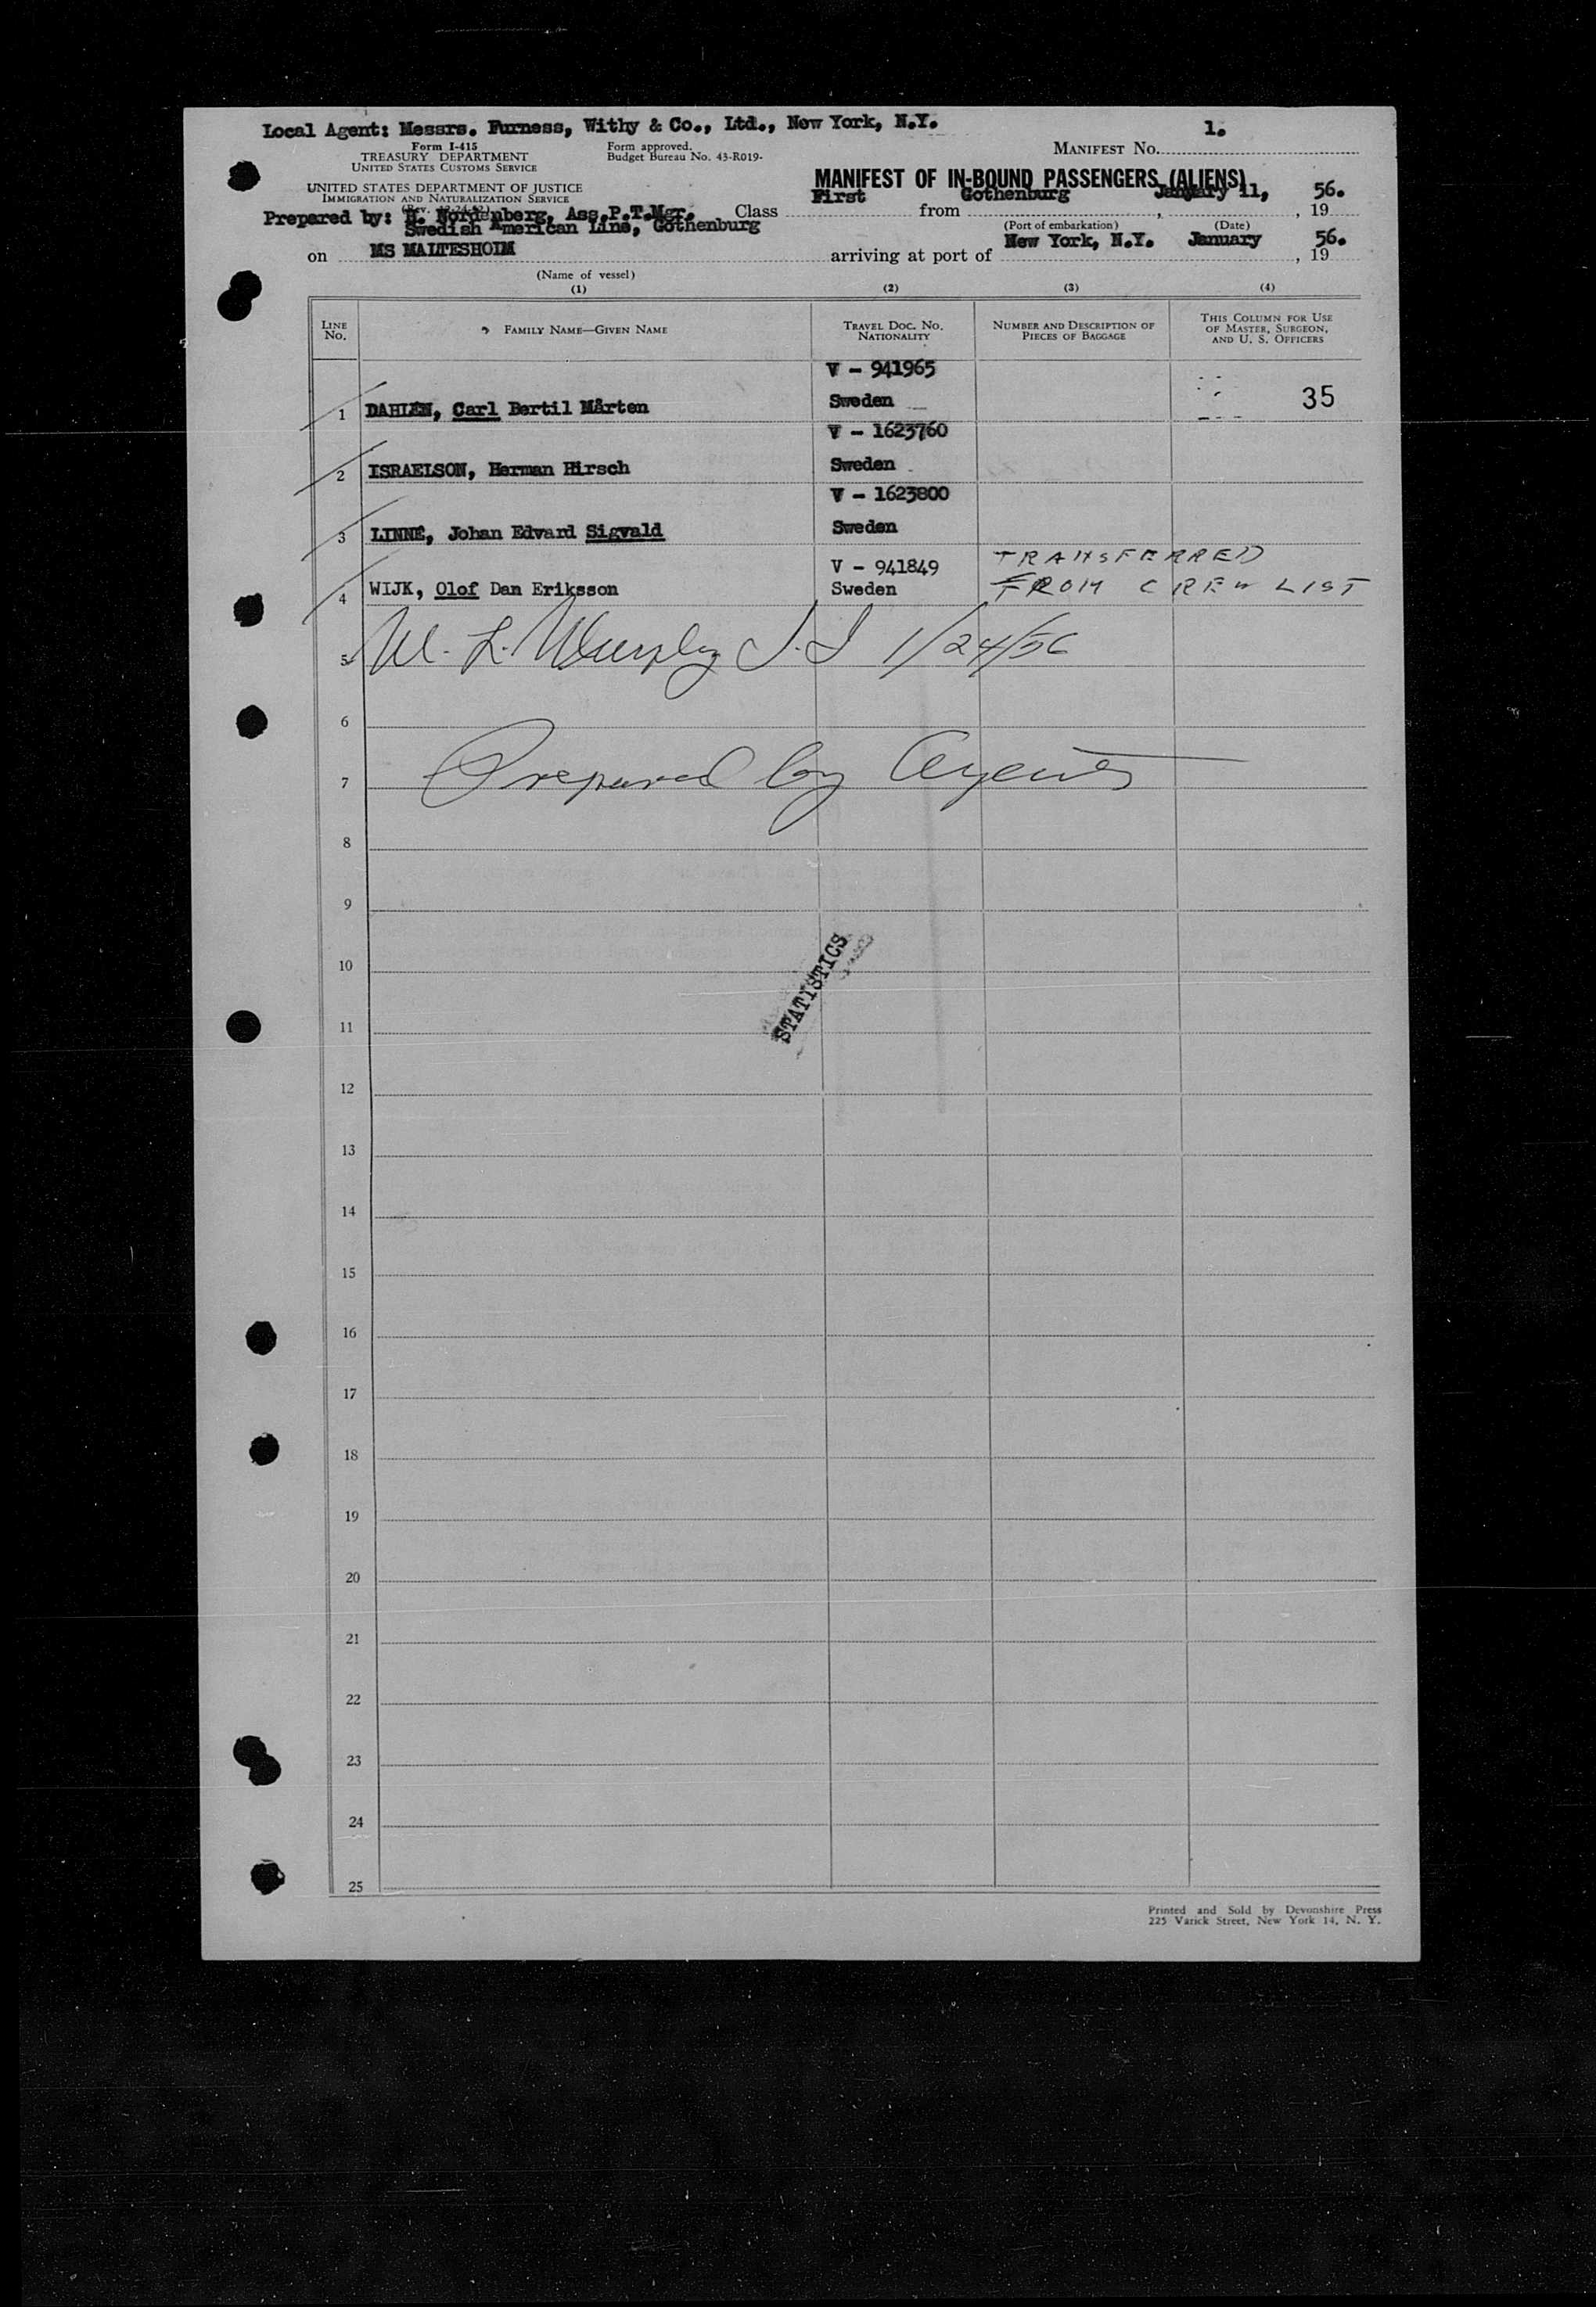 Local Agent: Messrs. Furness, Withy & Co., Ltd., New York, N.Y.
1.
Form I-415
TREASURY DEPARTMENT
UNITED STATES CUSTOMS SERVICE
Form approved.
Budget Bureau No. 43-R019-
MANIFEST No.
UNITED STATES DEPARTMENT OF JUSTICE
IMMIGRATION AND NATURALIZATION SERVICE
MANIFEST OF IN-BOUND PASSENGERS (ALIENS)
Prepared by: H. Nordenberg, Ass.P.T.Mgr.
Swedish American Line, Gothenburg
Class First from Gothenburg, January 11, , 19 56.
(Port of embarkation) (Date)
on MS MALTESHOLM arriving at port of New York, N.Y. January , 19 56.
(Name of vessel)
(1) (2) (3) (4)
LINE No. FAMILY NAME—GIVEN NAME TRAVEL DOC. No. NATIONALITY NUMBER AND DESCRIPTION OF PIECES OF BAGGAGE THIS COLUMN FOR USE OF MASTER, SURGEON, AND U. S. OFFICERS
V - 941965
1 DAHLÉN, Carl Bertil Mårten Sweden 35
V - 1623760
2 ISRAELSON, Herman Hirsch Sweden
V - 1623800
3 LINNÉ, Johan Edvard Sigvald Sweden
V - 941849 TRANSFERRED
4 WIJK, Olof Dan Eriksson Sweden FROM CREW LIST
5 M. L. Murphy I.I 1/24/56
6
7 Prepared by Agents
8
9
10
STATISTICS
11
12
13
14
15
16
17
18
19
20
21
22
23
24
25
Printed and Sold by Devonshire Press
225 Varick Street, New York 14, N. Y.